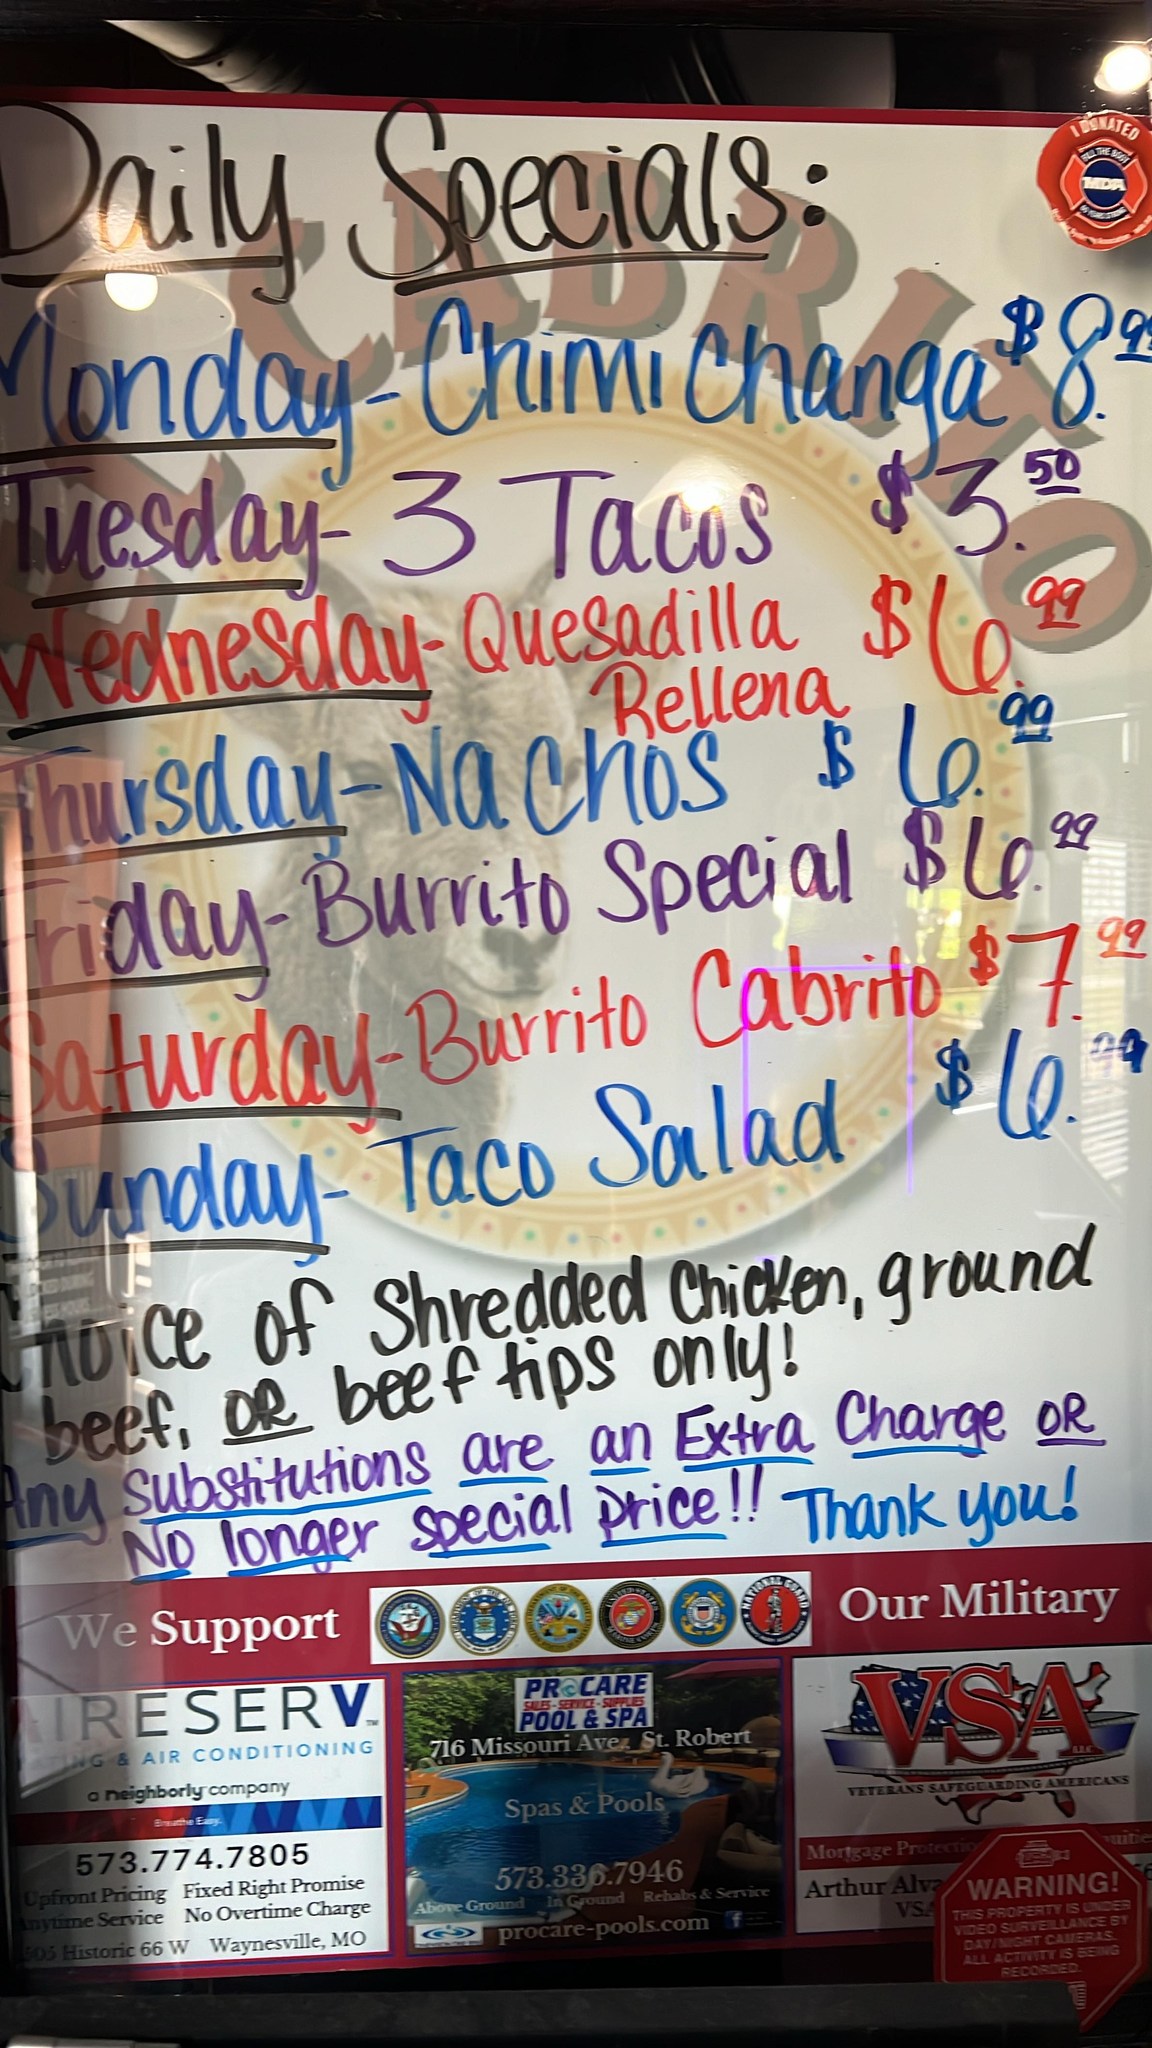 I DONATED
FILL THE BOOT
MDA
Daily Specials:
EL CABRITO
Monday - Chimi Changa $8.99
Tuesday - 3 Tacos $3.50
Wednesday - Quesadilla $6.99
Rellena
Thursday - Nachos $6.99
Friday - Burrito Special $6.99
Saturday - Burrito Cabrito $7.99
Sunday - Taco Salad $6.99
Choice of Shredded Chicken, ground
beef, OR beef tips only!
Any Substitutions are an Extra Charge OR
No longer special price!! Thank you!
We Support
NATIONAL GUARD
Our Military
AIRESERV™
ING & AIR CONDITIONING
a neighborly company
Breathe Easy.
573.774.7805
Upfront Pricing Fixed Right Promise
Anytime Service No Overtime Charge
Historic 66 W Waynesville, MO
PROCARE
SALES - SERVICE - SUPPLIES
POOL & SPA
716 Missouri Ave, St. Robert
Spas & Pools
573.336.7946
Above Ground In Ground Rehabs & Service
procare-pools.com
VSA
VETERANS SAFEGUARDING AMERICANS
Mortgage Protection
Arthur
VSA
WARNING!
THIS PROPERTY IS UNDER
VIDEO SURVEILLANCE BY
DAY/NIGHT CAMERAS.
ALL ACTIVITY IS BEING
RECORDED.